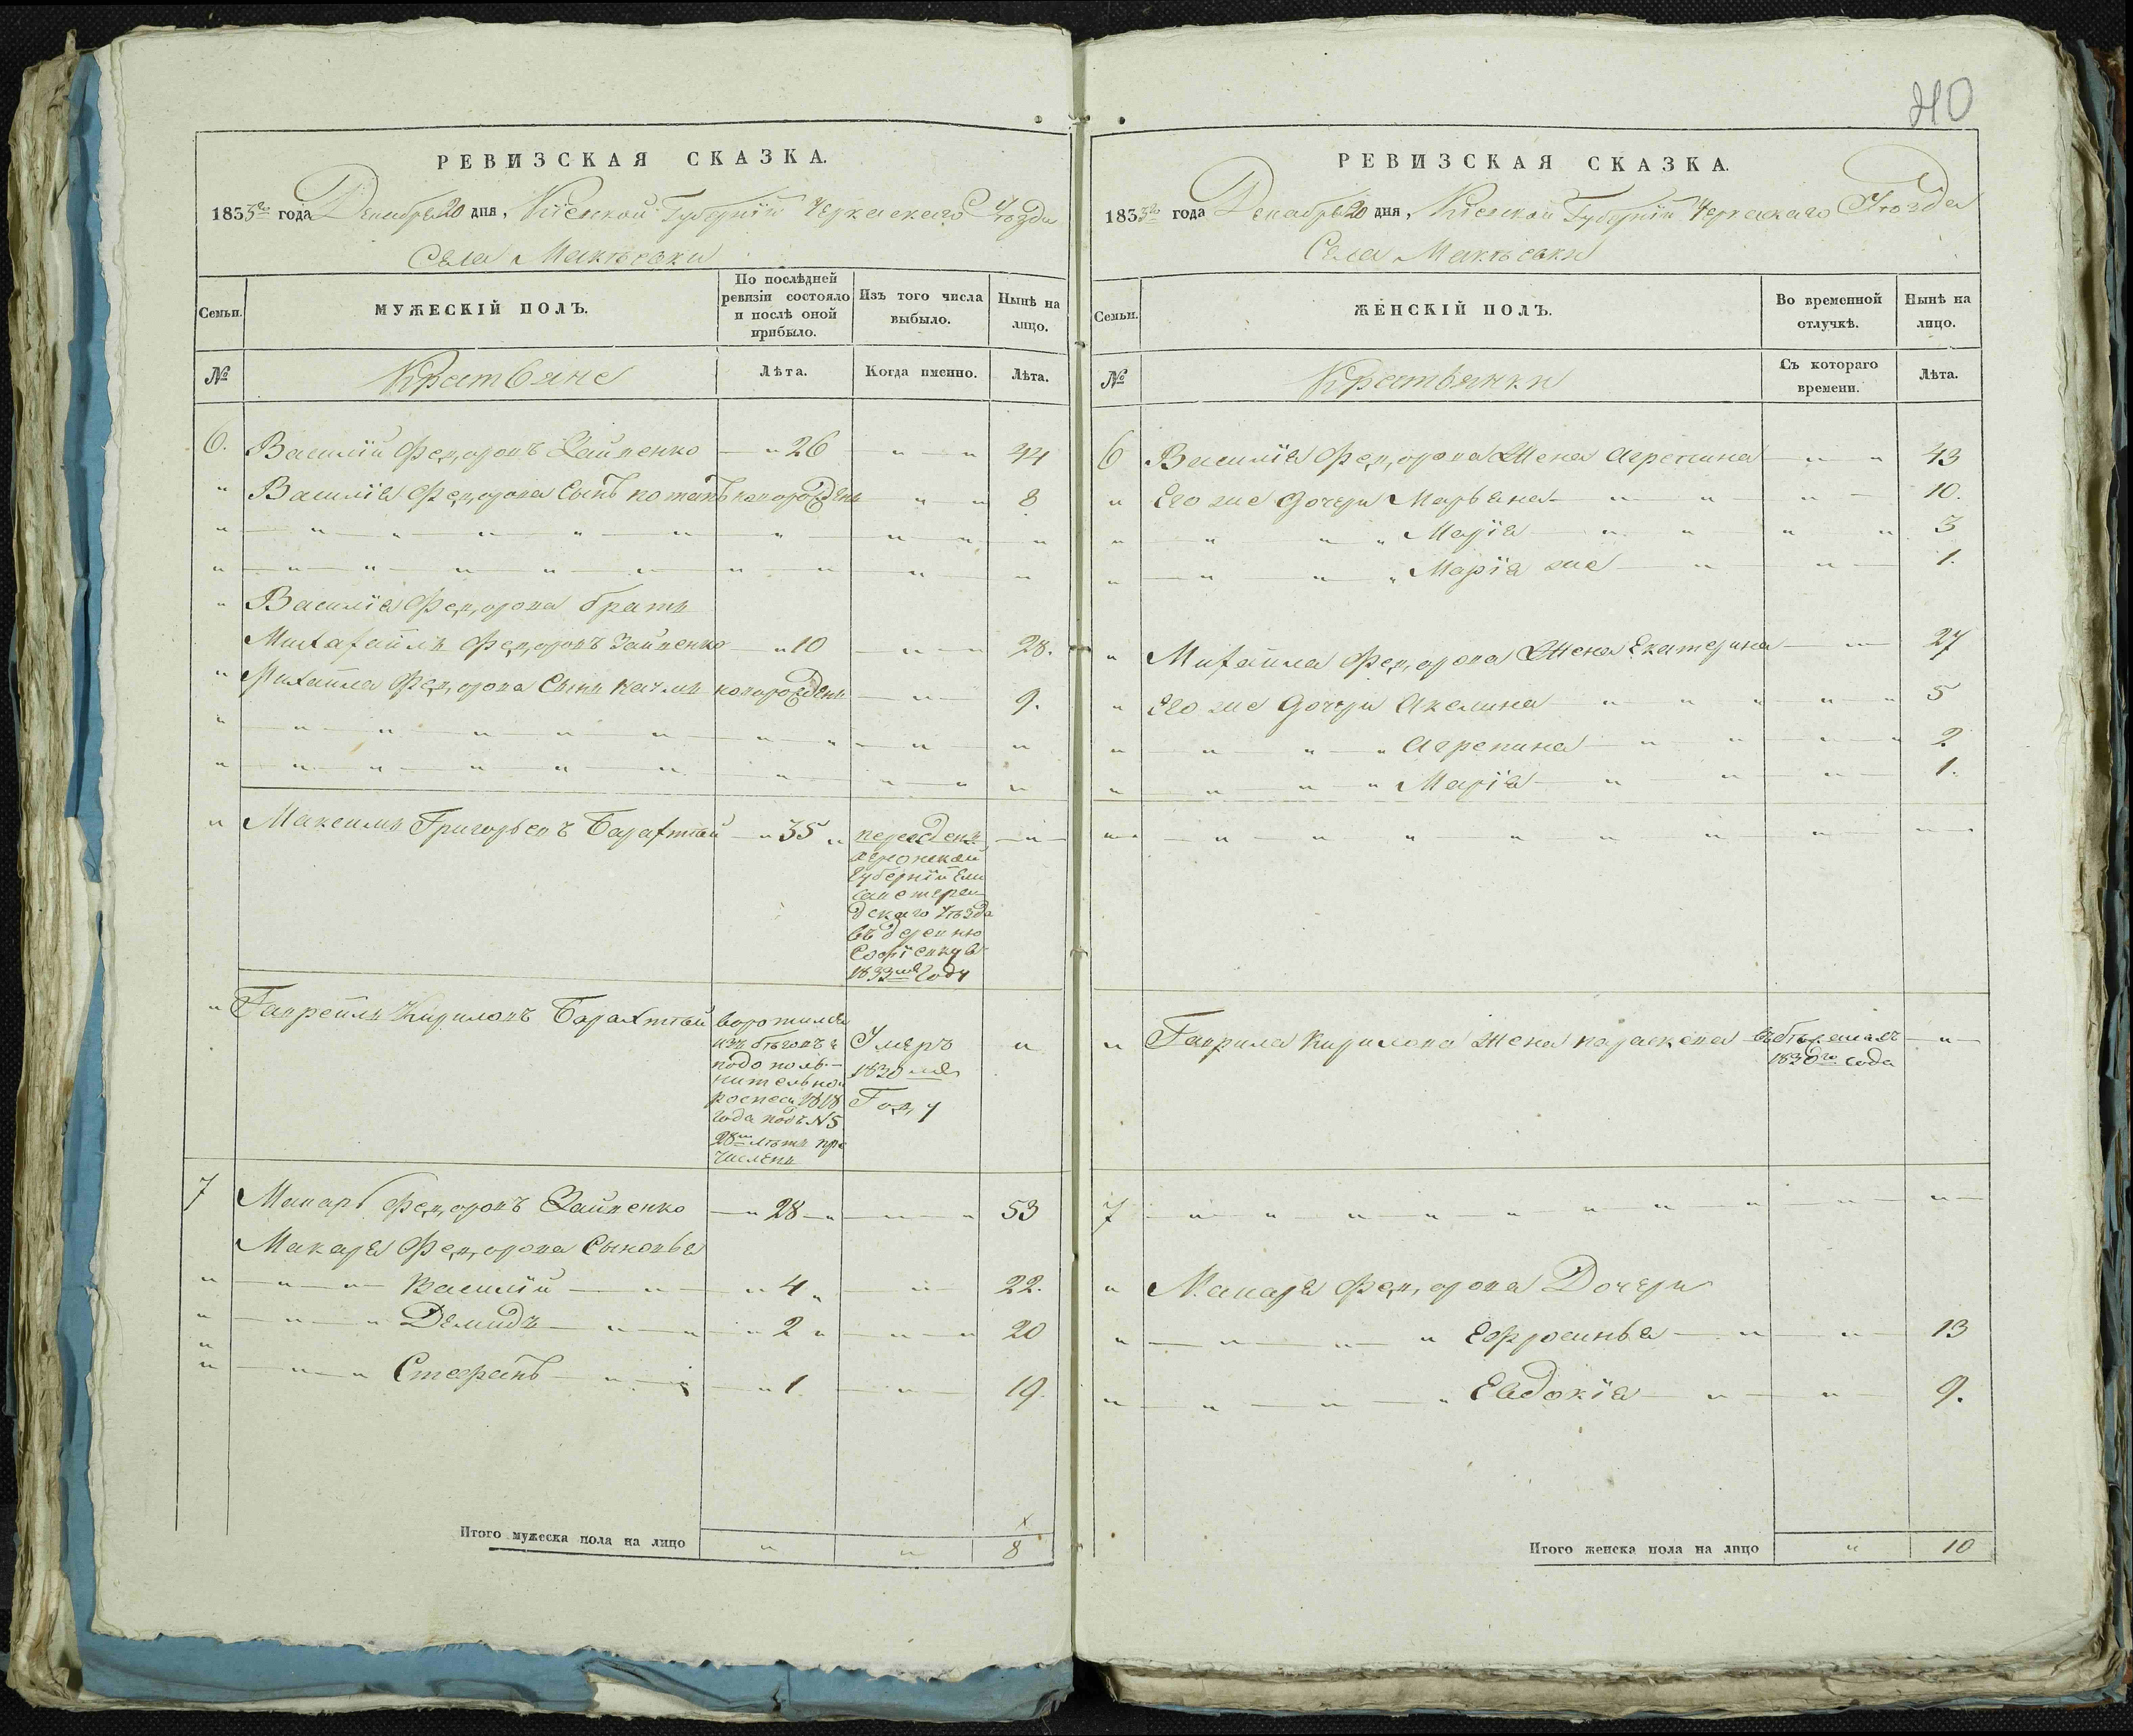 40
РЕВИЗСКАЯ СКАЗКА.
1833го года Декабря 20 дня, Кіевской Губерніи Черкаскаго Уѣзда
Села Макѣевки
Семьи.
МУЖЕСКІЙ ПОЛЪ.
По послѣдней ревизіи состояло и послѣ оной прибыло.
Изъ того числа выбыло.
Нынѣ на лицо.
№
Крестьяне
Лѣта.
Когда именно.
Лѣта.
6. Василій Федоровъ Заиченко 26 44
Василія Федорова Сынъ новорожденъ 8
Василія Федорова братъ
Федоровъ 10 28.
Михаила Федорова Сынъ новорожденъ 9.
Максимъ Григорьевъ Барахттій 35 переведенъ
Херсонской
Губерніи Ели
саветград
дскаго Уѣзда
въ деревню
Софіевку въ
1833мъ Году
Гавреилъ Кириловъ Барахттій воротился
изъ бѣговъ и
подополь-
нительной
1818
года подъ №5
28 лѣтъ при
численъ
Умеръ
1830мъ
Году
7 Макаръ Федоровъ 28 53
Макара Федорова Сыновья
Василій 4 22.
Демидъ 2 20
Стефанъ 1 19.
Итого мужеска пола на лицо 8
РЕВИЗСКАЯ СКАЗКА.
1833го года Декабря 20 дня, Кіевской Губерніи Черкаскаго Уѣзда
Села Макѣевки
Семьи.
ЖЕНСКІЙ ПОЛЪ.
Во временной отлучкѣ.
Нынѣ на лицо.
№
Крестьянки
Съ котораго времени.
Лѣта.
6 Василія Федорова Жена Агрепина 43
Его же Дочери Марьяна 10.
Марія 3
Марія же 1.
Михаила Федорова Жена Екатерина 27
Его же Дочери Акелина 5
Агрепина 2
Марія 1.
Гаврила Кирилова Жена Параскева
1830го года
7
Макара Федорова Дочери
Ефросинья 13
Евдокія 9.
Итого женска пола на лицо 10